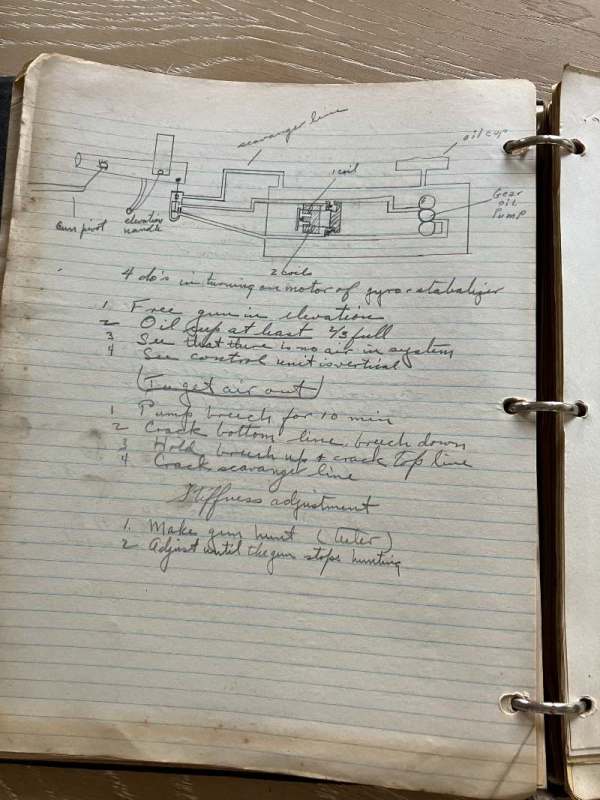 scavanger line
oil cup
1 coil
Gear
oil
Pump
Gun pivot
elevation
handle
2 coils
4 do's in turning on motor of gyro-stabalizer
1. Free gun in elevation
2 Oil cup at least 2/3 full
3 See that there is no air in system
4 See control unit is vertical
To get air out
1 Pump breech for 10 min
2 Crack bottom line, breech down
3 Hold breech up & crack top line
4 Crack scavanger line
Stiffness adjustment
1. Make gun hunt (teter)
2 Adjust until the gun stops hunting